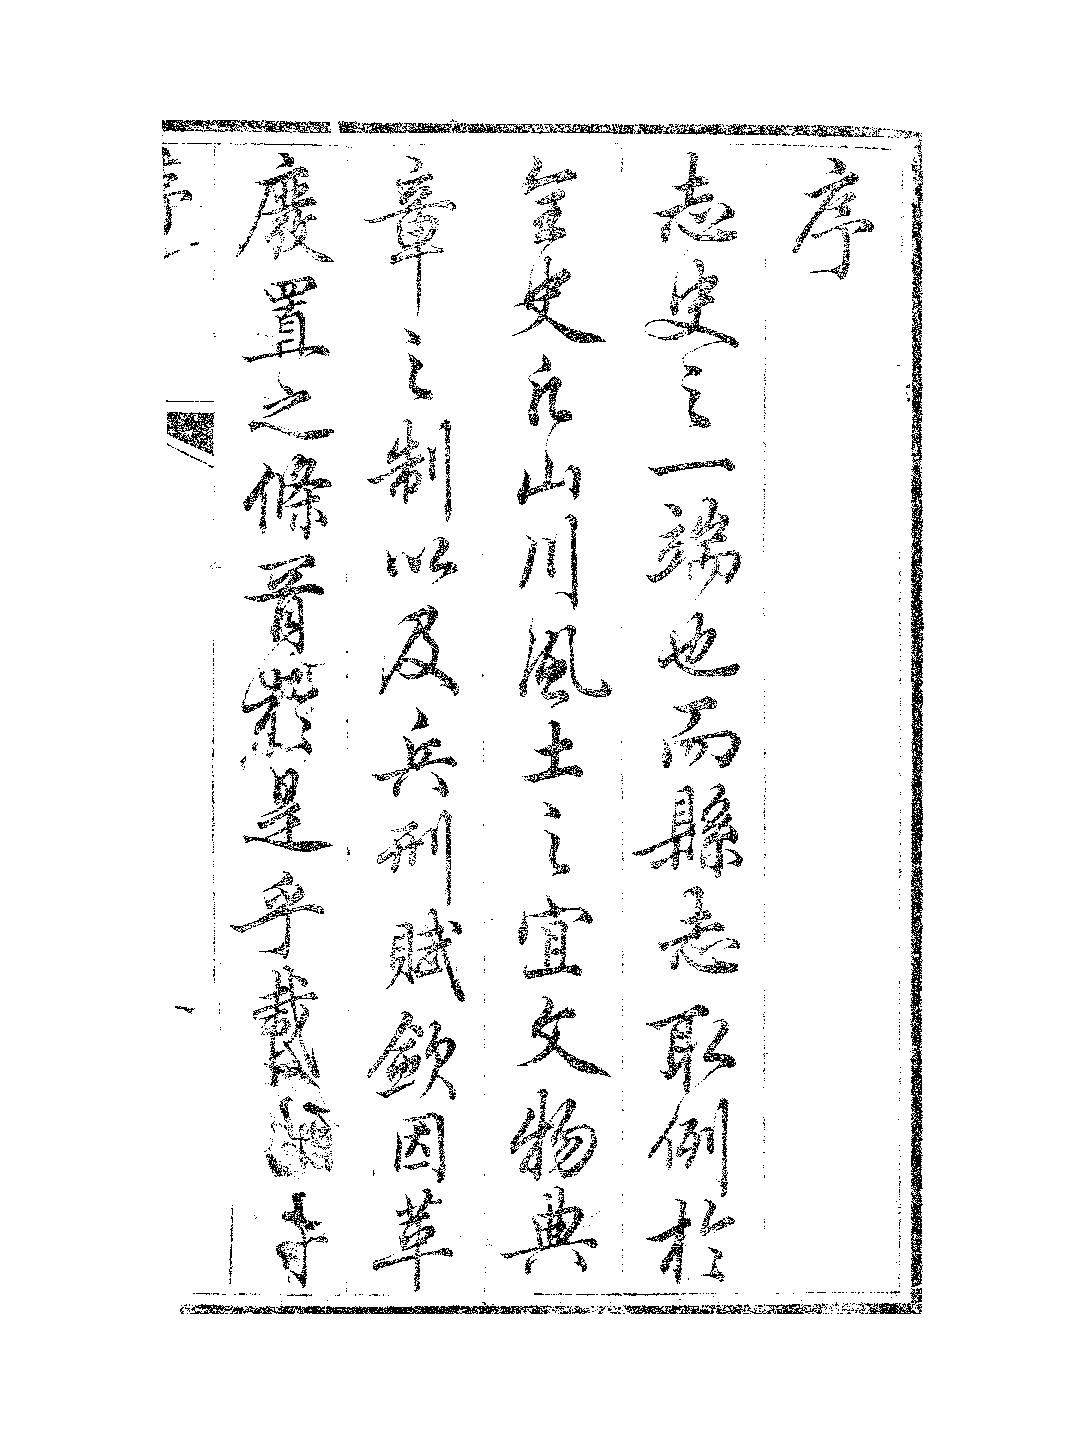 序
志史之一端也而縣志取例於
全史凡山川風土之宜文物典
章之制以及兵刑賦斂因革
廢置之條胥於是乎載
序一